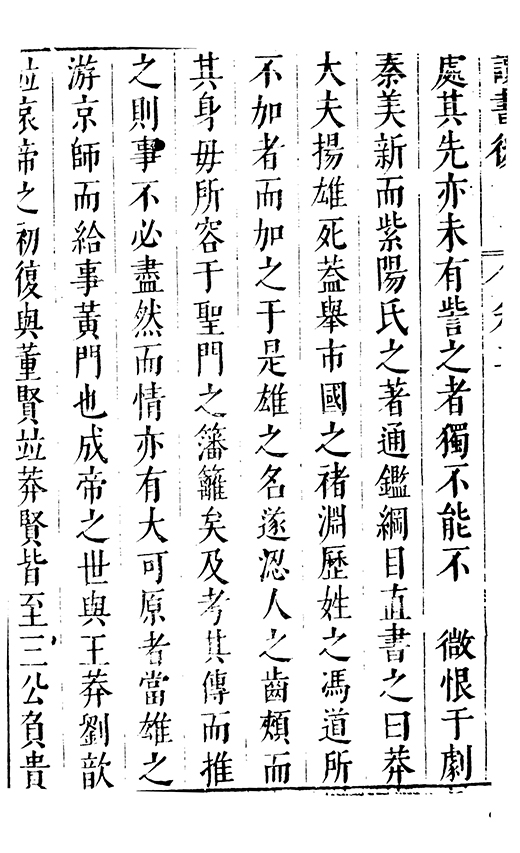 讀書後
處其先亦未有訾之者獨不能不　微恨于劇
秦美新而紫陽氏之著通鑑綱目直書之曰莽
大夫揚雄死葢舉市國之禇淵歷姓之馮道所
不加者而加之于是雄之名遂涊人之齒頰而
其身毋所容于聖門之籓籬矣及考其傳而推
之則事不必盡然而情亦有大可原者當雄之
游京師而給事黃門也成帝之世與王莽劉歆
竝哀帝之初復與董賢竝莽賢皆至三公負貴